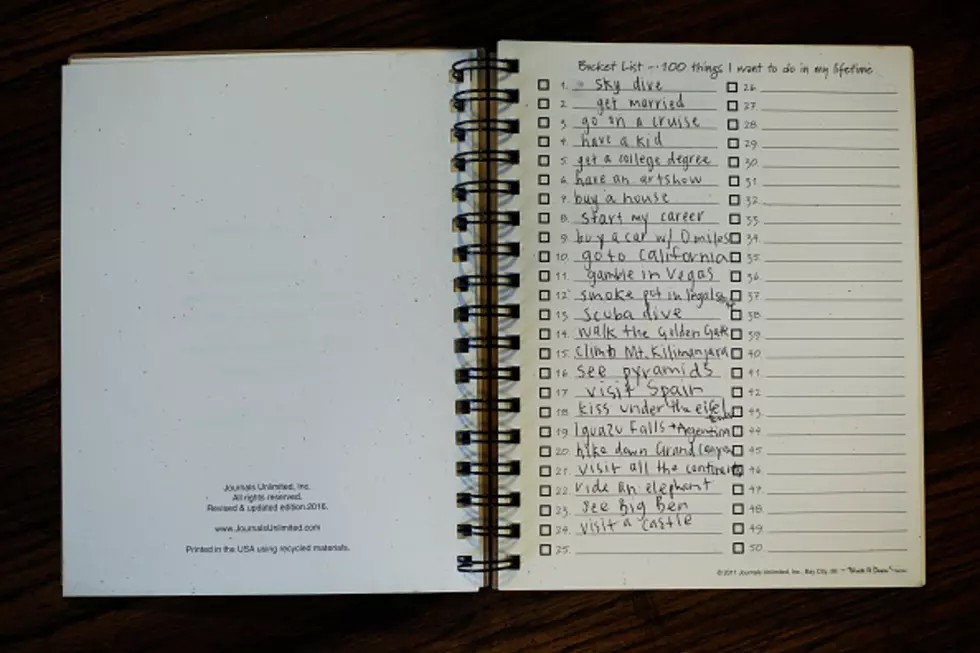 Journals Unlimited, Inc.
All rights reserved.
Revised & updated edition.2016.
www.JournalsUnlimited.com
Printed in the USA using recycled materials.
Bucket List -- 100 things I want to do in my lifetime
1. sky dive
2. get married
3. go on a cruise
4. have a kid
5. get a college degree
6. have an artshow
7. buy a house
8. start my career
9. buy a car w/ 0 miles
10. go to California
11. gamble in Vegas
12. smoke pot in legal
13. scuba dive
14. walk the Golden Gate
15. climb Mt. Kilimanjaro
16. see pyramids
17. visit Spain
18. kiss under the eifel
19. Iguazu Falls Argentina
20. hike down Grand Canyon
21. visit all the continents
22. ride an elephant
23. see Big Ben
24. visit a castle
25.
26.
27.
28.
29.
30.
31.
32.
33.
34.
35.
36.
37.
38.
39.
40.
41.
42.
43.
44.
45.
46.
47.
48.
49.
50.
© 2011 Journals Unlimited, Inc., Bay City, MI